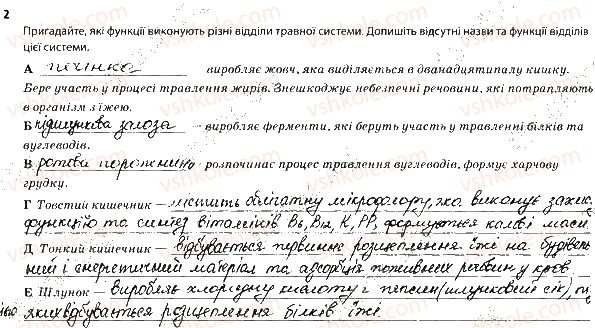 2
Пригадайте, які функції виконують різні відділи травної системи. Допишіть відсутні назви та функції відділів
цієї системи.
А печінка — виробляє жовч, яка виділяється в дванадцятипалу кишку.
Бере участь у процесі травлення жирів. Знешкоджує небезпечні речовини, які потрапляють
в організм з їжею.
Б підшлункова залоза — виробляє ферменти, які беруть участь у травленні білків та
вуглеводів.
В ротова порожнина — розпочинає процес травлення вуглеводів, формує харчову
грудку.
Г Товстий кишечник — містить облігатну мікрофлору, яка виконує захис.
функцію та синтез вітамінів В6, В12, К, РР, формуються калові маси.
Д Тонкий кишечник — відбувається первинне розщеплення їжі на будівель
ний і енергетичний матеріал та адсорбція поживних речовин у кров
Е Шлунок — виробляє хлоридну кислоту і пепсин (шлунковий сік), п
яких відбувається розщеплення білків їжі.